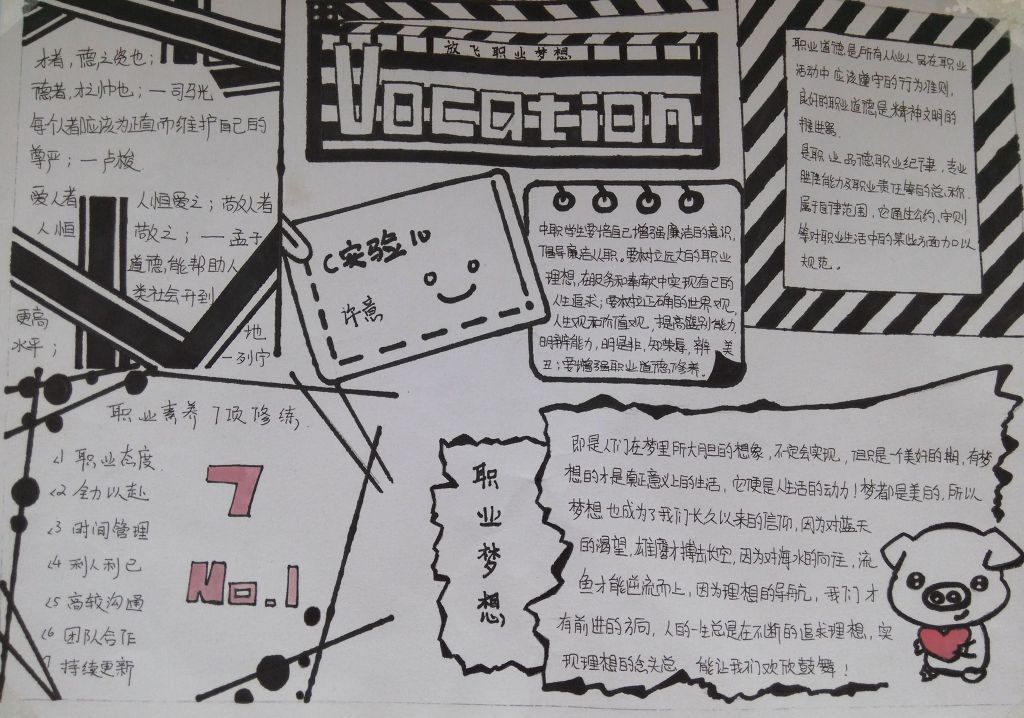 才者，德之资也；
德者，才之帅也；—司马光
每个人者应该为正直而维护自己的
尊严；—卢梭
爱人者 人恒爱之；敬人者
人恒 敬之；—孟子
道德，能帮助人
类社会升到
更高 地
水平； —列宁
放飞职业梦想
Vocation
职业道德是所有从业人员在职业
活动中应该遵守的行为准则，
良好的职业道德是精神文明的
推进器
是职业品德职业纪律，专业
胜任能力及职业责任等的总称
属于自律范围，它通过公约，守则
等对职业生活中的某些方面加以
规范。
C实验10
许意
中职学生要培自己增强廉洁的意识，
倡导廉洁从职，要树立远大的职业
理想，在服务和奉献中实现自己的
人生追求；要树立正确的世界观
人生观和价值观，提高鉴别能力，
明辨能力，明是非，知荣辱，辨 美
丑；要增强职业道德修养。
职业素养7项修炼
<1 职业态度
<2 全力以赴
<3 时间管理
<4 利人利己
<5 高效沟通
<6 团队合作
7 持续更新
7
No.1
职业梦想
即是人们在梦里所大胆的想象，不定会实现，但只是一个美好的期，有梦
想的才是真正意义上的生活，它便是人生活的动力！梦都是美的，所以
梦想也成为了我们长久以来的信仰，因为对蓝天
的渴望，雄鹰才搏击长空，因为对海水的向往，流
鱼才能逆流而上，因为理想的导航，我们才
有前进的方向，人的一生总是在不断的追求理想，实
现理想的念头总 能让我们欢欣鼓舞！